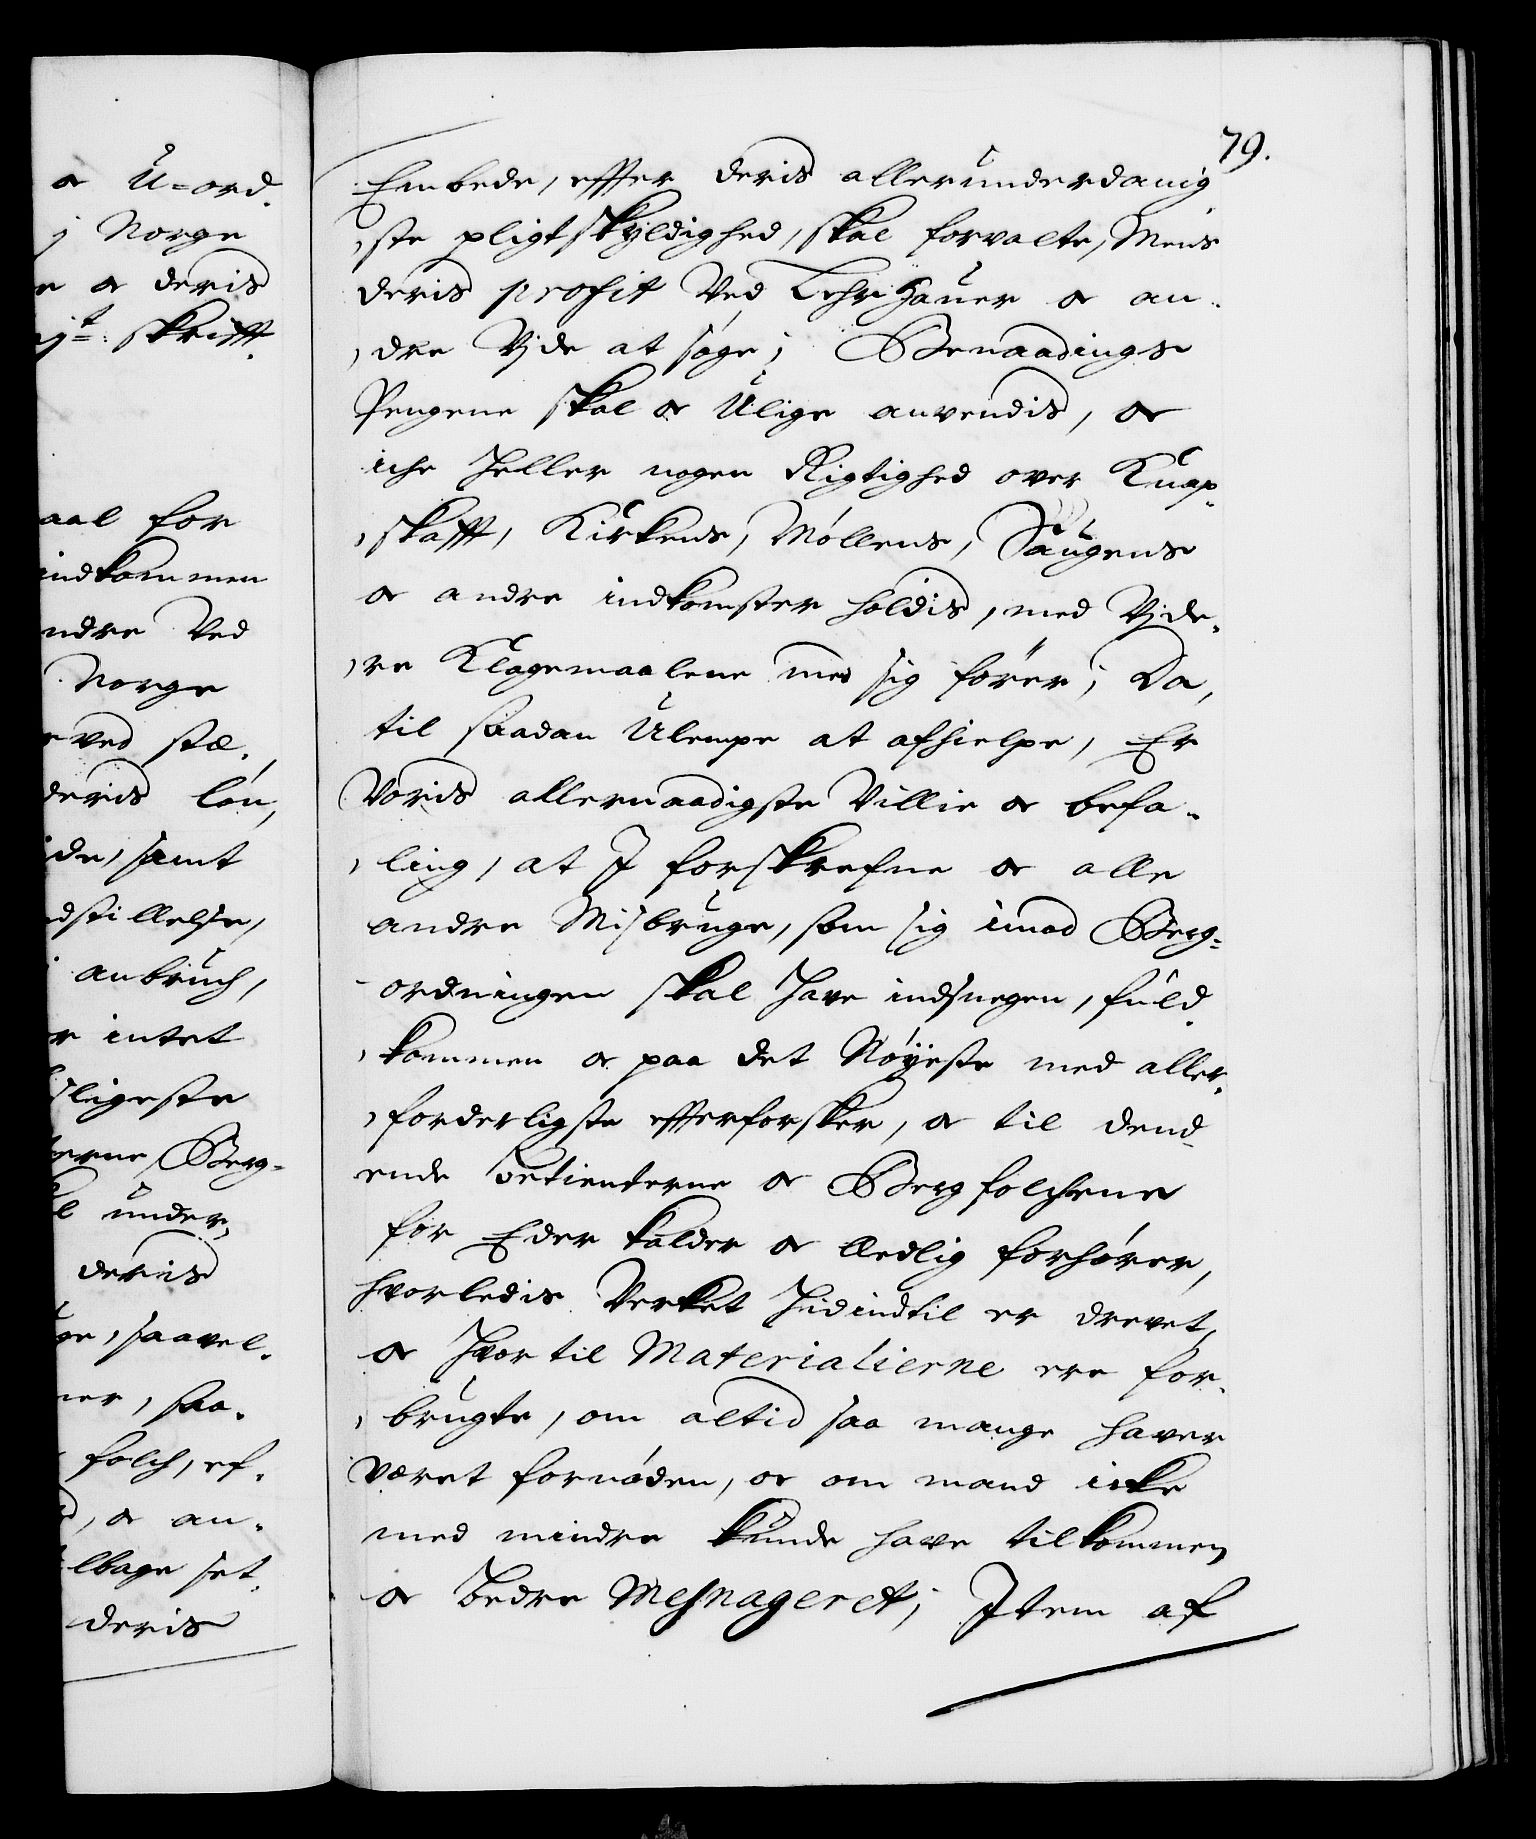 og U=ord.
j Norge
e og deris
skrifft.
aal for
indkommen
ndre ved
Norge
ved stæ.
deris løn,
ide, samt
dstillelse,
anbruch,
er intet
ligeste
erne, Berg-
l under,
deris
ge, saavel.
ner, saa.
folch, ef.
, og an.
lbage set.
deris
79.
Embede, effter deris allerunderdanig
,ste pligtskyldighed, skal forvalte, Mens
deris profit ved LehrHauer og an.
,dre Vjde at søge; Benaadings
Pengene skal og Ulige anvendis, og
iche heller nogen Rigtighed over Knap-
,skafft, Kirkens, Møllens, Saugens
og andre indkomster holdis, med Vjde.
,re Klagemaalene med sig fører; Da,
til saadan Ulempe at afhielpe, Er
Voris allernaadigste Villie og befa.
,ling, at I forskrefne og alle
andre Misbruge, som sig imod Berg-
ordningen skal have indsnegen, fuld.
,kommen og paa det Nøyeste med aller.
,forderligste effterforsker, og til dend
ende betienterne og Bergfolchene
for Eder kalder og Eedlig forhører,
hvorledis Verket hidindtil er drevet,
og hvortil Materialierne ere for.
,brugte, om altid saa mange haver
været fornøden, og om mand icke
med mindre kunde have tilkommen
og bedre Mesnageret; Item af